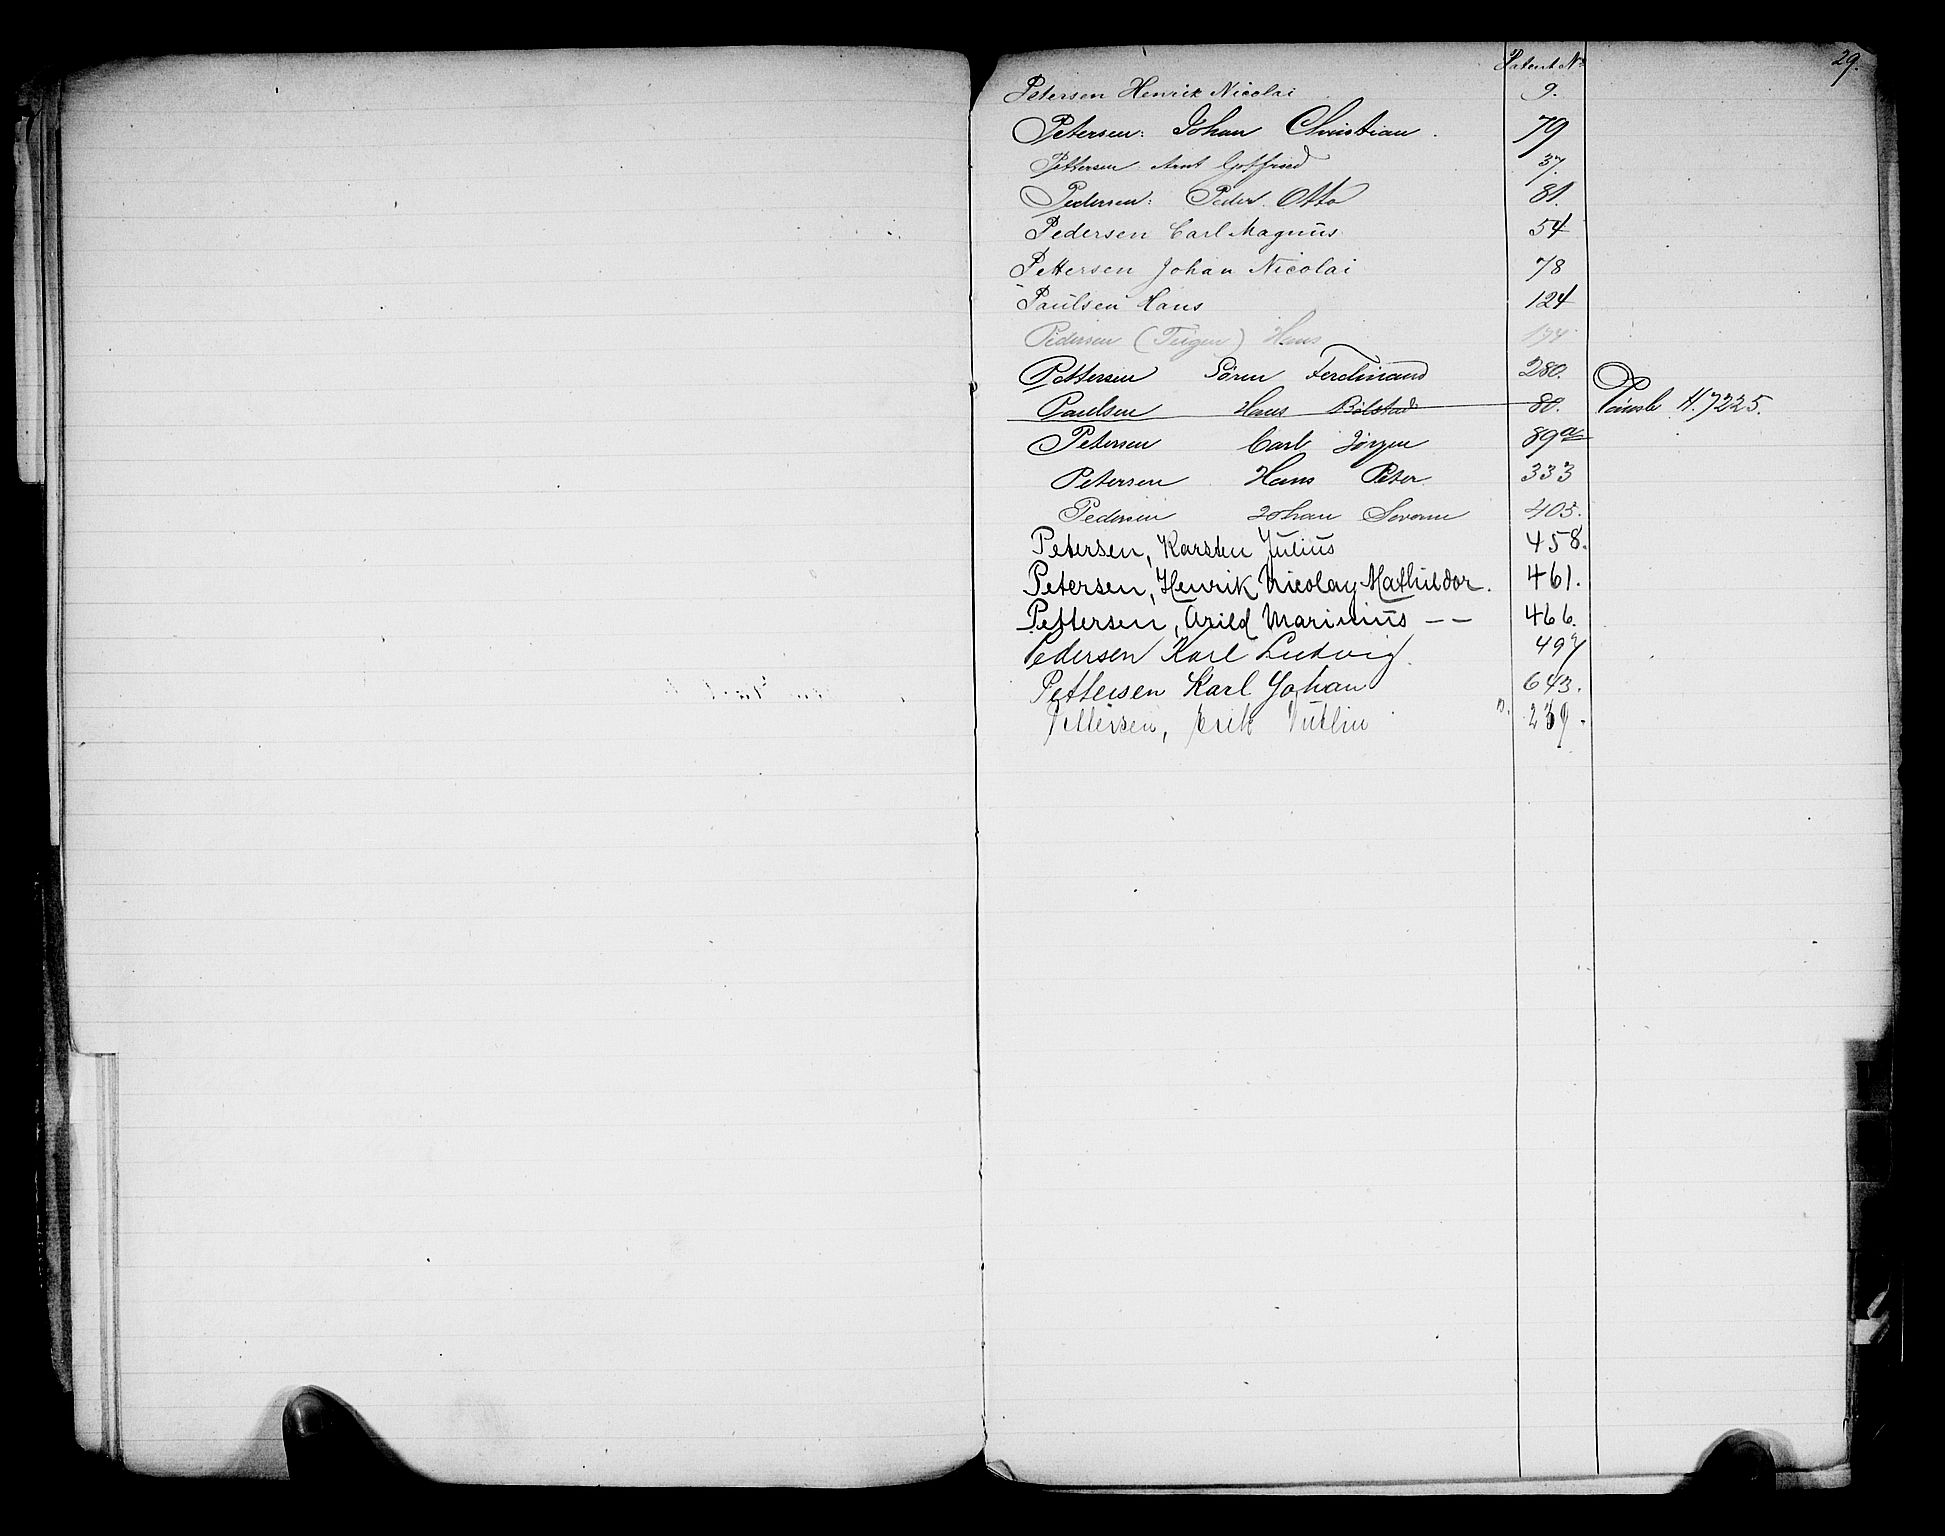 Patent No
29.
Petersen Henrik Nicolai 9.
Petersen: Johan Christian. 79
Pettersen Arnt Gotfried 37.
Pedersen: Peder Otto 81.
Pedersen Carl Magnus 54
Pettersen Johan Nicolai 78
Paulsen Hans 124
Pedersen (Teigen) Hans 174
Pettersen Sören Ferdinand 280.
Paulsen Hans Bölstad 80. H. 7225.
Petersen Carl Jörgen 89a
Petersen Hans Peter 333
Pedersen Johan Severin 405.
Petersen, Karsten Julius 458.
Petersen, Henrik Nicolay Mathildor. 461.
Pettersen, Arild Marinius - - 466.
Pedersen Karl Ludvig. 497
Pettersen Karl Johan 643.
Pettersen, Erik 239.